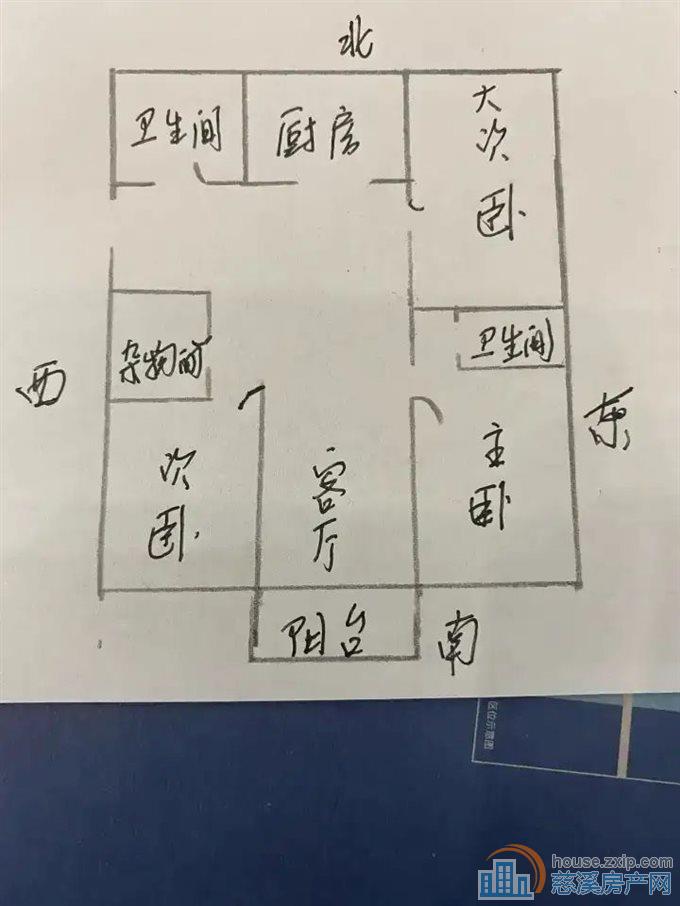 北
卫生间
厨房
大次卧
卫生间
杂物间
西
东
次卧
客厅
主卧
阳台
南
区位示意图
house.zxip.com
慈溪房产网